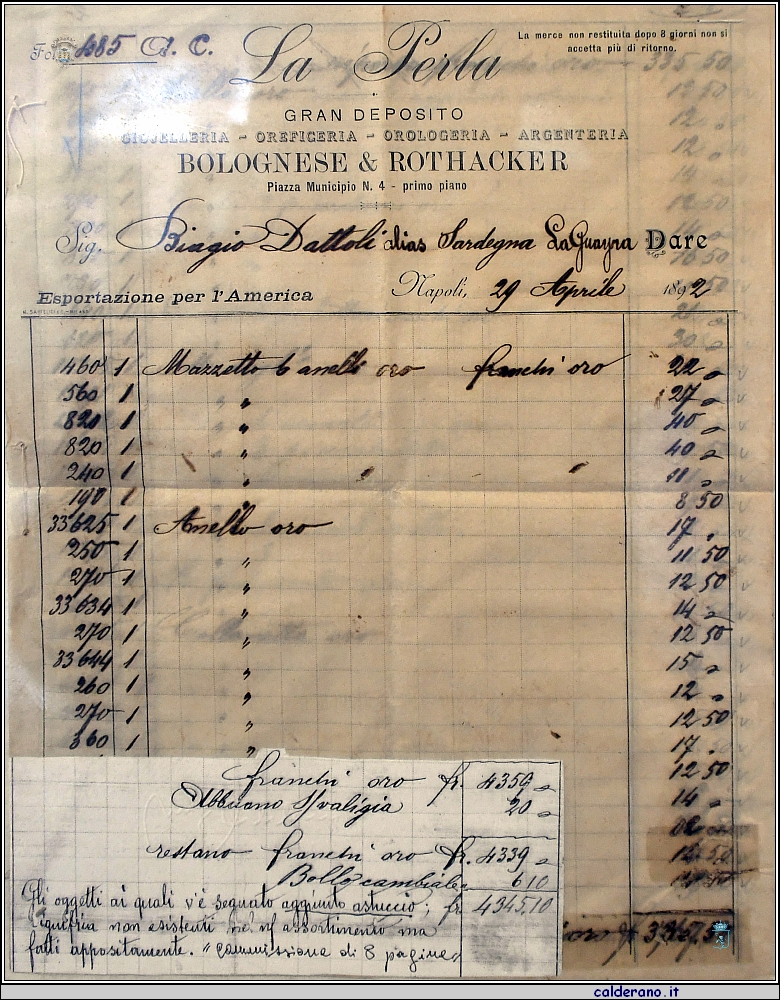 Fo. 485 A. C.
La merce non restituita dopo 8 giorni non si
accetta più di ritorno.
La Perla
GRAN DEPOSITO
GIOJELLERIA - OREFICERIA - OROLOGERIA - ARGENTERIA
BOLOGNESE & ROTHACKER
Piazza Municipio N. 4 - primo piano
Sig. Biagio Dattoli alias Sardegna LaGuayra Dare
Esportazione per l'America
Napoli, 29 Aprile 1892
460 1 Mazzetto 6 anelli oro franchi oro 22 "
560 1 " 27 "
820 1 " 40 "
820 1 " 40 "
240 1 " 11 "
190 1 " 8 50
33625 1 Anello oro 17 "
250 1 " 11 50
270 1 " 12 50
33634 1 " 14 "
270 1 " 12 50
33644 1 " 15 "
260 1 " 12 "
270 1 " 12 50
360 1 " 17 "
12 50
14 "
franchi oro fr. 4359 "
Abbuono s/valigia 20 "
restano franchi oro fr. 4339 "
Bollo cambiale " 6 10
fr 4345.10
Gli oggetti ai quali v'è segnato aggiunto astuccio;
figuriria non esistenti ne' n/ assortimento ma
fatti appositamente. "Commissione di 8 pagine"
calderano.it